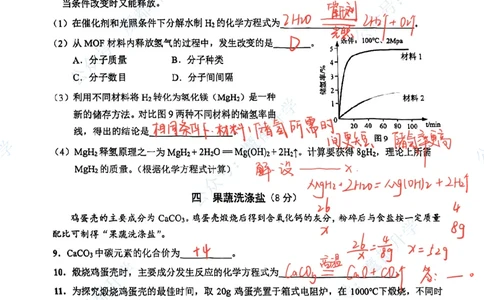 当条件改变时又能释放。
(1) 在催化剂和光照条件下分解水制 H₂ 的化学方程式为 2H₂O 催化剂 光照 2H₂↑+O₂↑
(2) 从 MOF 材料内释放氢气的过程中，发生改变的是 D 。
A．分子质量 B．分子种类
C．分子数目 D．分子间间隔
条件：100℃、2Mpa
储氢率/%
5
4
3
2
1
材料 1
材料 2
20 40 60 80 100 t/min
图 9
(3) 利用不同材料将 H₂ 转化为氢化镁（MgH₂）是一种
新的储存方法。对比图 9 两种不同材料的储氢率曲
线，得出的结论是 相同条件下,材料1储氢所需时
间更短、储氢率更高
(4) MgH₂ 释氢原理之一为 MgH₂＋2H₂O＝Mg(OH)₂＋2H₂↑。计算要获得 8gH₂，理论上所需
MgH₂ 的质量。（根据化学方程式计算）
解 设 —— x
MgH₂+2H₂O=Mg(OH)₂+2H₂↑
26 4
x 8g
26/x=4/8g x=52g
答: —。
四 果蔬洗涤盐（8 分）
鸡蛋壳的主要成分为 CaCO₃，鸡蛋壳煅烧后得到含氧化钙的灰分，粉碎后与食盐按一定质量
配比可制得“果蔬洗涤盐”。
9．CaCO₃ 中碳元素的化合价为 +4 。
10．煅烧鸡蛋壳时，主要成分发生反应的化学方程式为 CaCO₃ 高温 CaO+CO₂↑
11．为探究煅烧鸡蛋壳的最佳时间，取 20g 鸡蛋壳置于箱式电阻炉，在 1000℃下煅烧，不同时